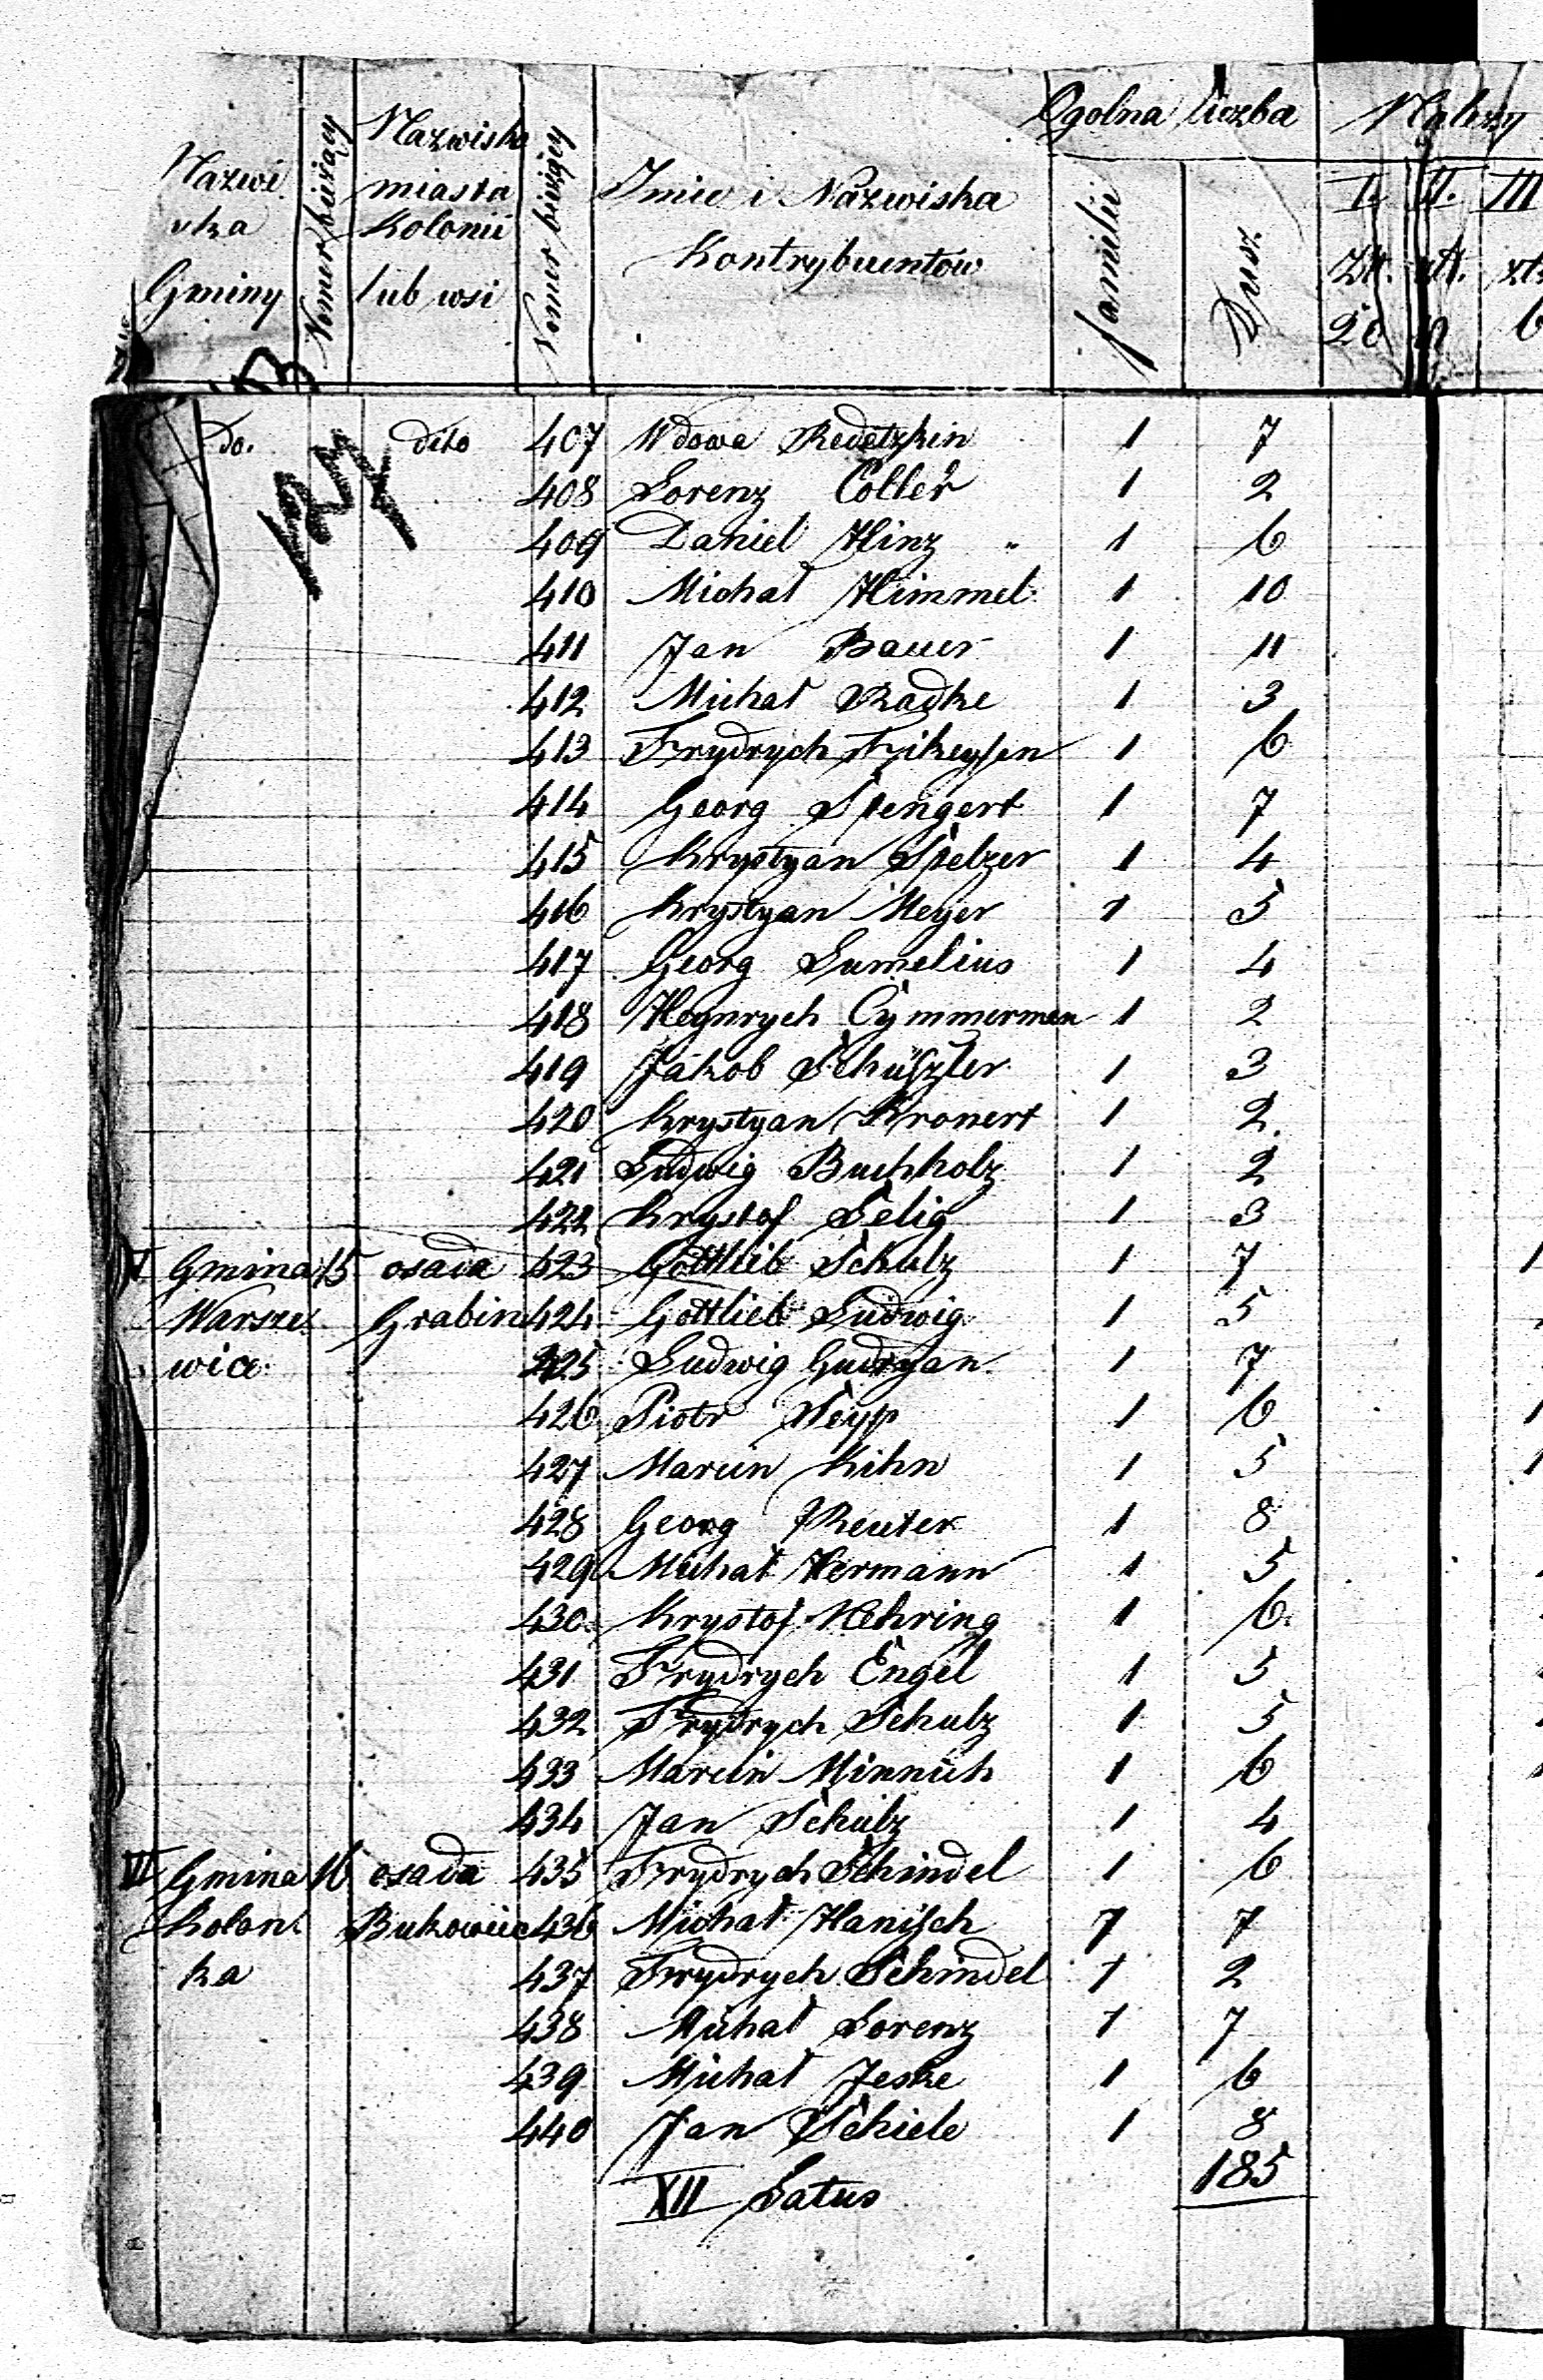 Nazwi
ska
Gminy
Nomer bieżący
Nazwiska
miasta
Kolonii
lub wsi
Nomer bieżący
Imie i Nazwiska
Kontrybuentow
Ogolna liczba
familii
Dusz
Należy
I. II. III
Zł. zł. zł
20
127
do. dito 407 Wdowa Redetzkin 1 7
408 Lorenz Coller 1 2
409 Daniel Hinz " 1 6
410 Michał Himmel 1 10
411 Jan Bauer 1 11
412 Michał Radke 1 3
413 Frydrych 1 6
414 Georg Spengert 1 7
415 Krystyan Spelzer 1 4
416 Krystyan Meyer 1 5
417 Georg Lumelius 1 4
418 Heynrych Cymmerman 1 2
419 Jakob Schüszler 1 3
420 Krystyan Kronert 1 2
421 Ludwig Buchholz 1 2
422 Krystof Selig 1 3
V Gmina 15 osada 423 Gottlieb Schulz 1 7
Warsze Grabin 424 Gottlieb Ludwig 1 5
wice 425 Ludwig Gudryan 1 7
426 Piotr Seyp 1 6
427 Marcin Kihn 1 5
428 Georg Reuter 1 8
429 Michał Hermann 1 5
430 Krystof Nehring 1 6
431 Frydrych Engel 1 5
432 Frydrych Schulz 1 5
433 Marcin Minnich 1 6
434 Jan Schulz 1 4
VI Gmina 16 osada 435 Frydrych Schindel 1 6
Kolon Bukowiec 436 Michał Hanisch 1 7
ka 437 Frydrych Schindel 1 2
438 Michał Lorenz 1 7
439 Michał Jeske 1 6
440 Jan Schiele 1 8
XII Latus 185